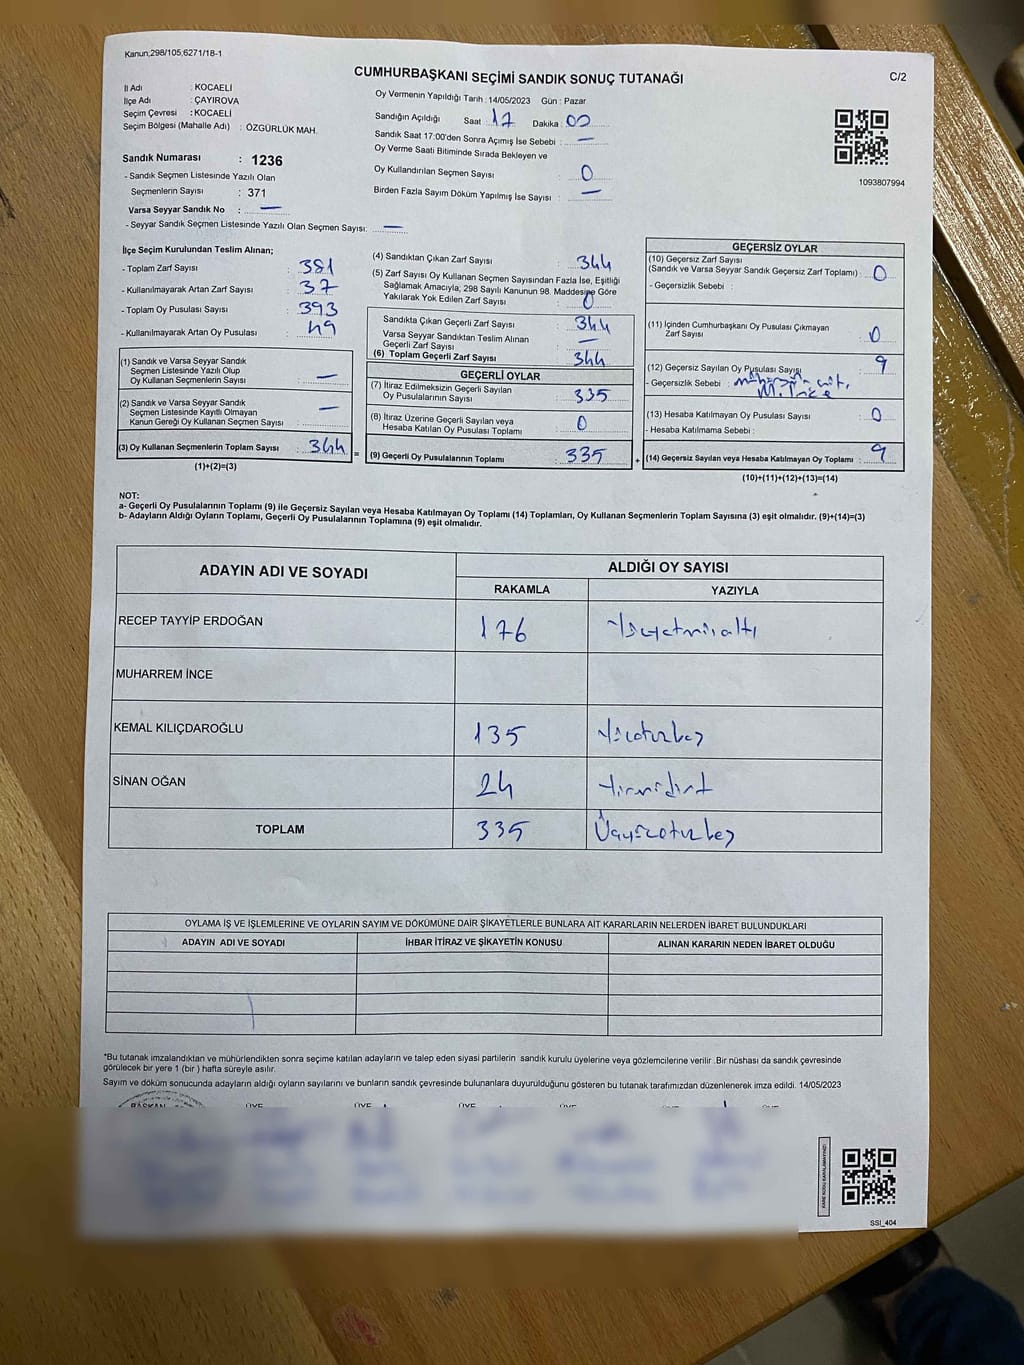 Kanun;298/105,6271/18-1
CUMHURBAŞKANI SEÇİMİ SANDIK SONUÇ TUTANAĞI
C/2
İl Adı : KOCAELİ
İlçe Adı : ÇAYIROVA
Seçim Çevresi : KOCAELİ
Seçim Bölgesi (Mahalle Adı) : ÖZGÜRLÜK MAH.
Sandık Numarası : 1236
- Sandık Seçmen Listesinde Yazılı Olan
Seçmenlerin Sayısı : 371
Varsa Seyyar Sandık No : —
- Seyyar Sandık Seçmen Listesinde Yazılı Olan Seçmen Sayısı: —
Oy Vermenin Yapıldığı Tarih : 14/05/2023 Gün : Pazar
Sandığın Açıldığı Saat : 17 Dakika : 00
Sandık Saat 17:00'den Sonra Açımış İse Sebebi : —
Oy Verme Saati Bitiminde Sırada Bekleyen ve
Oy Kullandırılan Seçmen Sayısı : 0
Birden Fazla Sayım Döküm Yapılmış İse Sayısı : —
1093807994
İlçe Seçim Kurulundan Teslim Alınan;
- Toplam Zarf Sayısı : 381
- Kullanılmayarak Artan Zarf Sayısı : 37
- Toplam Oy Pusulası Sayısı : 393
- Kullanılmayarak Artan Oy Pusulası : 49
(1) Sandık ve Varsa Seyyar Sandık
Seçmen Listesinde Yazılı Olup
Oy Kullanan Seçmenlerin Sayısı : —
(2) Sandık ve Varsa Seyyar Sandık
Seçmen Listesinde Kayıtlı Olmayan
Kanun Gereği Oy Kullanan Seçmen Sayısı : —
(3) Oy Kullanan Seçmenlerin Toplam Sayısı : 344 =
(1)+(2)=(3)
(4) Sandıktan Çıkan Zarf Sayısı : 344
(5) Zarf Sayısı Oy Kullanan Seçmen Sayısından Fazla İse, Eşitliği
Sağlamak Amacıyla; 298 Sayılı Kanunun 98. Maddesine Göre
Yakılarak Yok Edilen Zarf Sayısı : 0
Sandıkta Çıkan Geçerli Zarf Sayısı : 344
Varsa Seyyar Sandıktan Teslim Alınan
Geçerli Zarf Sayısı : —
(6) Toplam Geçerli Zarf Sayısı : 344
GEÇERLİ OYLAR
(7) İtiraz Edilmeksizin Geçerli Sayılan
Oy Pusulalarının Sayısı : 335
(8) İtiraz Üzerine Geçerli Sayılan veya
Hesaba Katılan Oy Pusulası Toplamı : 0
(9) Geçerli Oy Pusulalarının Toplamı : 335 +
GEÇERSİZ OYLAR
(10) Geçersiz Zarf Sayısı
(Sandık ve Varsa Seyyar Sandık Geçersiz Zarf Toplamı) : 0
- Geçersizlik Sebebi :
(11) İçinden Cumhurbaşkanı Oy Pusulası Çıkmayan
Zarf Sayısı : 0
(12) Geçersiz Sayılan Oy Pusulası Sayısı : 9
- Geçersizlik Sebebi : M. İnce
(13) Hesaba Katılmayan Oy Pusulası Sayısı : 0
- Hesaba Katılmama Sebebi :
(14) Geçersiz Sayılan veya Hesaba Katılmayan Oy Toplamı : 9
(10)+(11)+(12)+(13)=(14)
NOT:
a- Geçerli Oy Pusulalarının Toplamı (9) ile Geçersiz Sayılan veya Hesaba Katılmayan Oy Toplamı (14) Toplamları, Oy Kullanan Seçmenlerin Toplam Sayısına (3) eşit olmalıdır. (9)+(14)=(3)
b- Adayların Aldığı Oyların Toplamı, Geçerli Oy Pusulalarının Toplamına (9) eşit olmalıdır.
ADAYIN ADI VE SOYADI
ALDIĞI OY SAYISI
RAKAMLA YAZIYLA
RECEP TAYYİP ERDOĞAN 176 Yüzyetmişaltı
MUHARREM İNCE
KEMAL KILIÇDAROĞLU 135 Yüzotuzbeş
SİNAN OĞAN 24 Yirmidört
TOPLAM 335 Üçyüzotuzbeş
OYLAMA İŞ VE İŞLEMLERİNE VE OYLARIN SAYIM VE DÖKÜMÜNE DAİR ŞİKAYETLERLE BUNLARA AİT KARARLARIN NELERDEN İBARET BULUNDUKLARI
ADAYIN ADI VE SOYADI İHBAR İTİRAZ VE ŞİKAYETİN KONUSU ALINAN KARARIN NEDEN İBARET OLDUĞU
*Bu tutanak imzalandıktan ve mühürlendikten sonra seçime katılan adayların ve talep eden siyasi partilerin sandık kurulu üyelerine veya gözlemcilerine verilir .Bir nüshası da sandık çevresinde
görülecek bir yere 1 (bir ) hafta süreyle asılır.
Sayım ve döküm sonucunda adayların aldığı oyların sayılarını ve bunların sandık çevresinde bulunanlara duyurulduğunu gösteren bu tutanak tarafımızdan düzenlenerek imza edildi. 14/05/2023
BAŞKAN ÜYE ÜYE ÜYE ÜYE ÜYE
KARE KODU KARALAMAYINIZ!
SSI_404